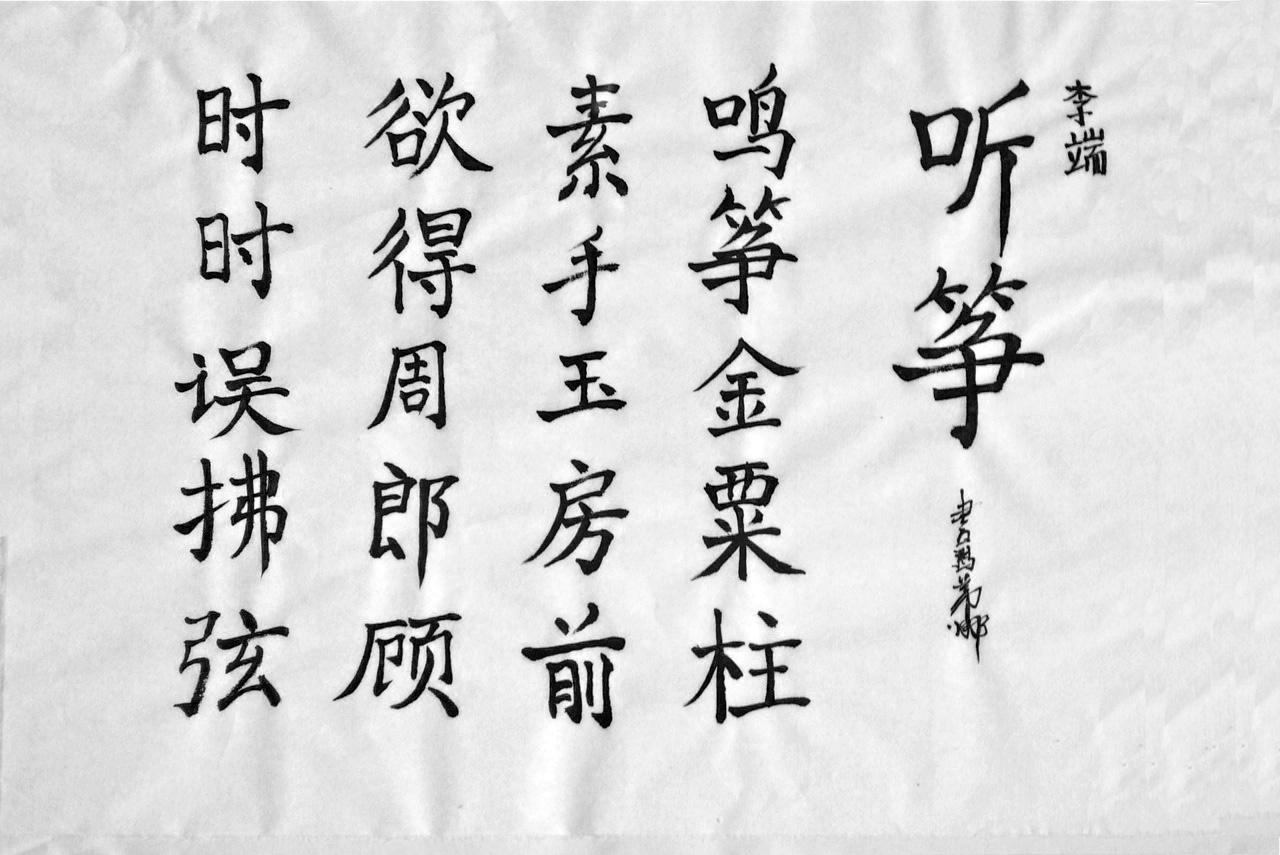 李端
听筝
鸣筝金粟柱
素手玉房前
欲得周郎顾
时时误拂弦